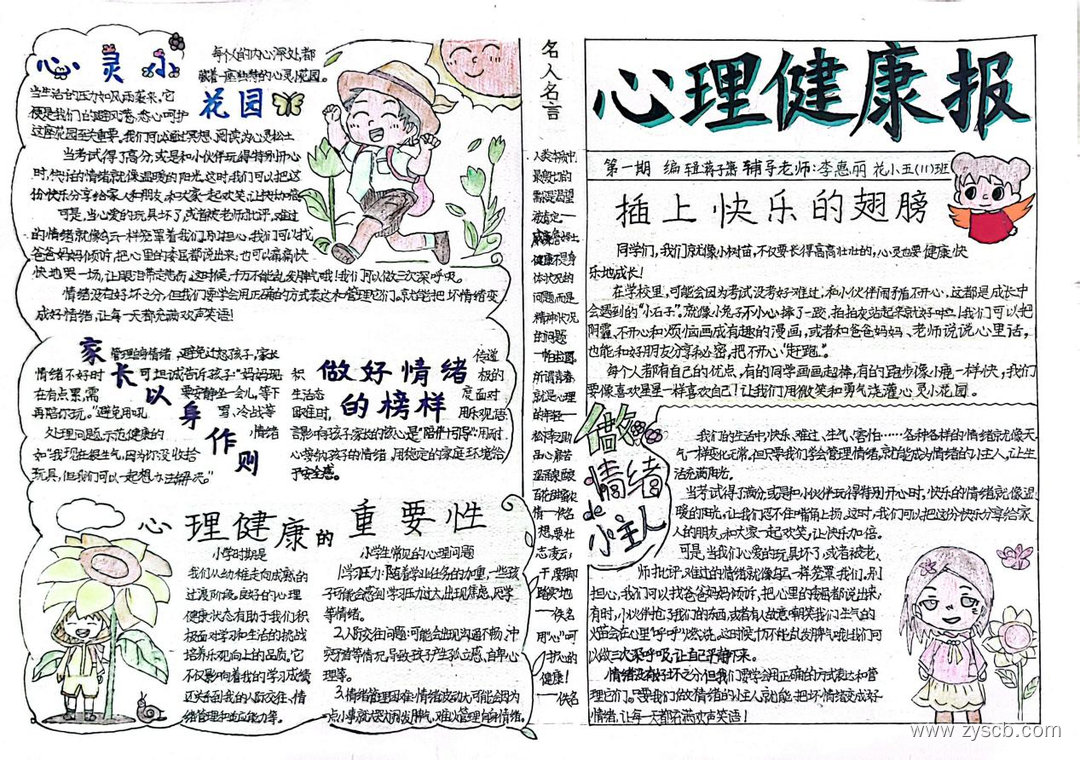 心理健康报
第一期 编辑:蒋子萧 辅导老师:李惠丽 花小五(11)班
插上快乐的翅膀
同学们,我们就像小树苗,不仅要长得高高壮壮的,心灵也要健康快
乐地成长!
在学校里,可能会因为考试没考好难过,和小伙伴闹矛盾不开心,这都是成长中
会遇到的“小石子”。就像小兔子不小心摔了一跤,拍拍灰站起来就好啦!我们可以把
阴霾、不开心和烦恼画成有趣的漫画,或者和爸爸妈妈、老师说说心里话,
也能和好朋友分享秘密,把不开心“赶跑”。
每个人都有自己的优点,有的同学画画超棒,有的跑步像小鹿一样快,我们
要像喜欢星星一样喜欢自己!让我们用微笑和勇气浇灌心灵小花园。
做
情绪
de
小主人
我们的生活中,快乐、难过、生气、害怕……各种各样的情绪就像天
气一样变化无常。但只要我们学会管理情绪,就能成为情绪的小主人,让生
活充满阳光。
当考试得了满分,或是和小伙伴玩得特别开心时,快乐的情绪就像温
暖的阳光,让我们忍不住嘴角上扬。这时,我们可以把这份快乐分享给家
人和朋友,和大家一起欢笑,让快乐加倍。
可是,当我们心爱的玩具坏了,或者被老
师批评,难过的情绪就像乌云一样笼罩我们。别
担心,我们可以找爸爸妈妈倾诉,把心里的委屈都说出来,
有时,小伙伴抢了我们的东西,或者有人故意嘲笑我们,生气的
火苗会在心里“呼呼”燃烧。这时候,千万不能乱发脾气哦!我们可
以做三次深呼吸,让自己平静下来。
情绪没有好坏之分,但我们要学会用正确的方式表达和管
理它们。只要我们做情绪的小主人,就能把坏情绪变成好
情绪,让每一天都充满欢声笑语!
名人名言
人类本质中
最殷切的
需求是渴望
被肯定—
威廉·詹姆士
健康不是身
体状况的
问题,而是
精神状况
的问题
所谓青春,
就是心理
的年轻—
松下幸之助
用心”呵
护心的
健康!
—佚名
心灵小
花园
每个人的内心深处,都
藏着一座独特的心灵花园。
当生活的压力如风雨袭来,它
便是我们的避风港,悉心呵护
这座花园至关重要。我们可以通过冥想、阅读为心灵松土
当考试得了高分,或是和小伙伴玩得特别开心
时,快乐的情绪就像温暖的阳光,这时,我们可以把这
份快乐分享给家人和朋友,和大家一起欢笑,让快乐加倍
可是,当心爱的玩具坏了,或者被老师批评,难过
的情绪就像乌云一样笼罩着我们,别担心,我们可以找
爸爸妈妈倾听,把心里的委屈都说出来;也可以痛痛快
快地哭一场,让眼泪带走悲伤。这时候,千万不能乱发脾气哦!我们可以做三次深呼吸。
情绪没有好坏之分,但我们要学会用正确的方式表达和管理它们。就能把坏情绪变
成好情绪,让每一天都充满欢声笑语!
家长以身作则
管理自身情绪,避免迁怒孩子,家长
情绪不好时可坦诚告诉孩子“妈妈现
在有点累,需要安静坐一会儿,等下
再陪你玩。”避免用吼骂、冷战等
处理问题,示范健康的情绪
如“我现在很生气,因为你没收拾
玩具,但我们可以一起想办法解决。”
做好情绪的榜样
传递
积极的
生活态度,面对
困难时,用乐观语
言影响孩子家长的核心是“陪伴+引导”,用耐
心等待孩子的情绪,用稳定的家庭环境给
予安全感。
心理健康的重要性
小学时期是
我们从幼稚走向成熟的
过渡阶段。良好的心理
健康状态有助于我们积
极面对学习和生活的挑战
培养乐观向上的品质。它
不仅影响着我的学习成绩
还关乎到我的人际交往、情
绪管理和适应能力等。
小学生常见的心理问题
1.学习压力:随着学业任务的加重,一些孩
子可能会感到学习压力过大,出现焦虑、厌学
等情绪。
2.人际交往问题:可能会出现沟通不畅、冲
突矛盾等情况,导致孩子产生孤立感、自卑心
理等。
3.情绪管理困难:情绪波动大,可能会因为一
点小事就大动发脾气,难以管理自身情绪。
www.zyscb.com